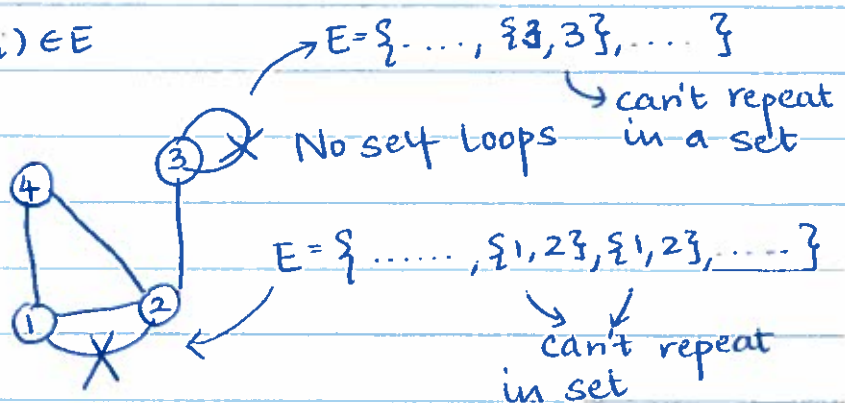 ) ∈ E
E = {...., {3, 3}, .... }
can't repeat
in a set
No self loops
3
4
E = { ......, {1, 2}, {1, 2}, ..... }
1
2
can't repeat
in set